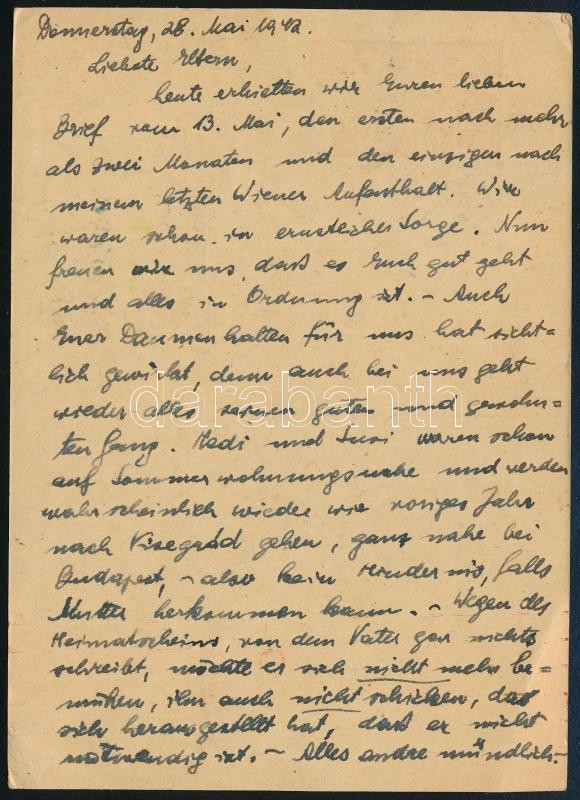 Donnerstag, 28. Mai 1942.
Liebste Eltern,
heute erhielten wir Euren lieben
Brief vom 13. Mai, den ersten nach mehr
als zwei Monaten und den einzigen nach
meinem letzten Wiener Aufenthalt. Wir
waren schon in ernstlicher Sorge. Nun
freuen wir uns, daß es Euch gut geht
und alles in Ordnung ist. – Auch
Euer Daumenhalten für uns hat sicht=
lich gewirkt, denn auch bei uns geht
wieder alles seinen guten und gewohn=
ten Gang. Hedi und Susi waren schon
auf Sommerwohnungssuche und werden
wahrscheinlich wieder wie voriges Jahr
nach Visegrád gehen, ganz nahe bei
Budapest, – also kein Hindernis, falls
Mutter herkommen kann. – Wegen des
Heimatscheins, von dem Vater gar nichts
schreibt, möchte er sich nicht mehr be=
mühen, ihn auch nicht schicken, da
sich herausgestellt hat, daß er nicht
notwendig ist. – Alles andre mündlich.–
darabanth